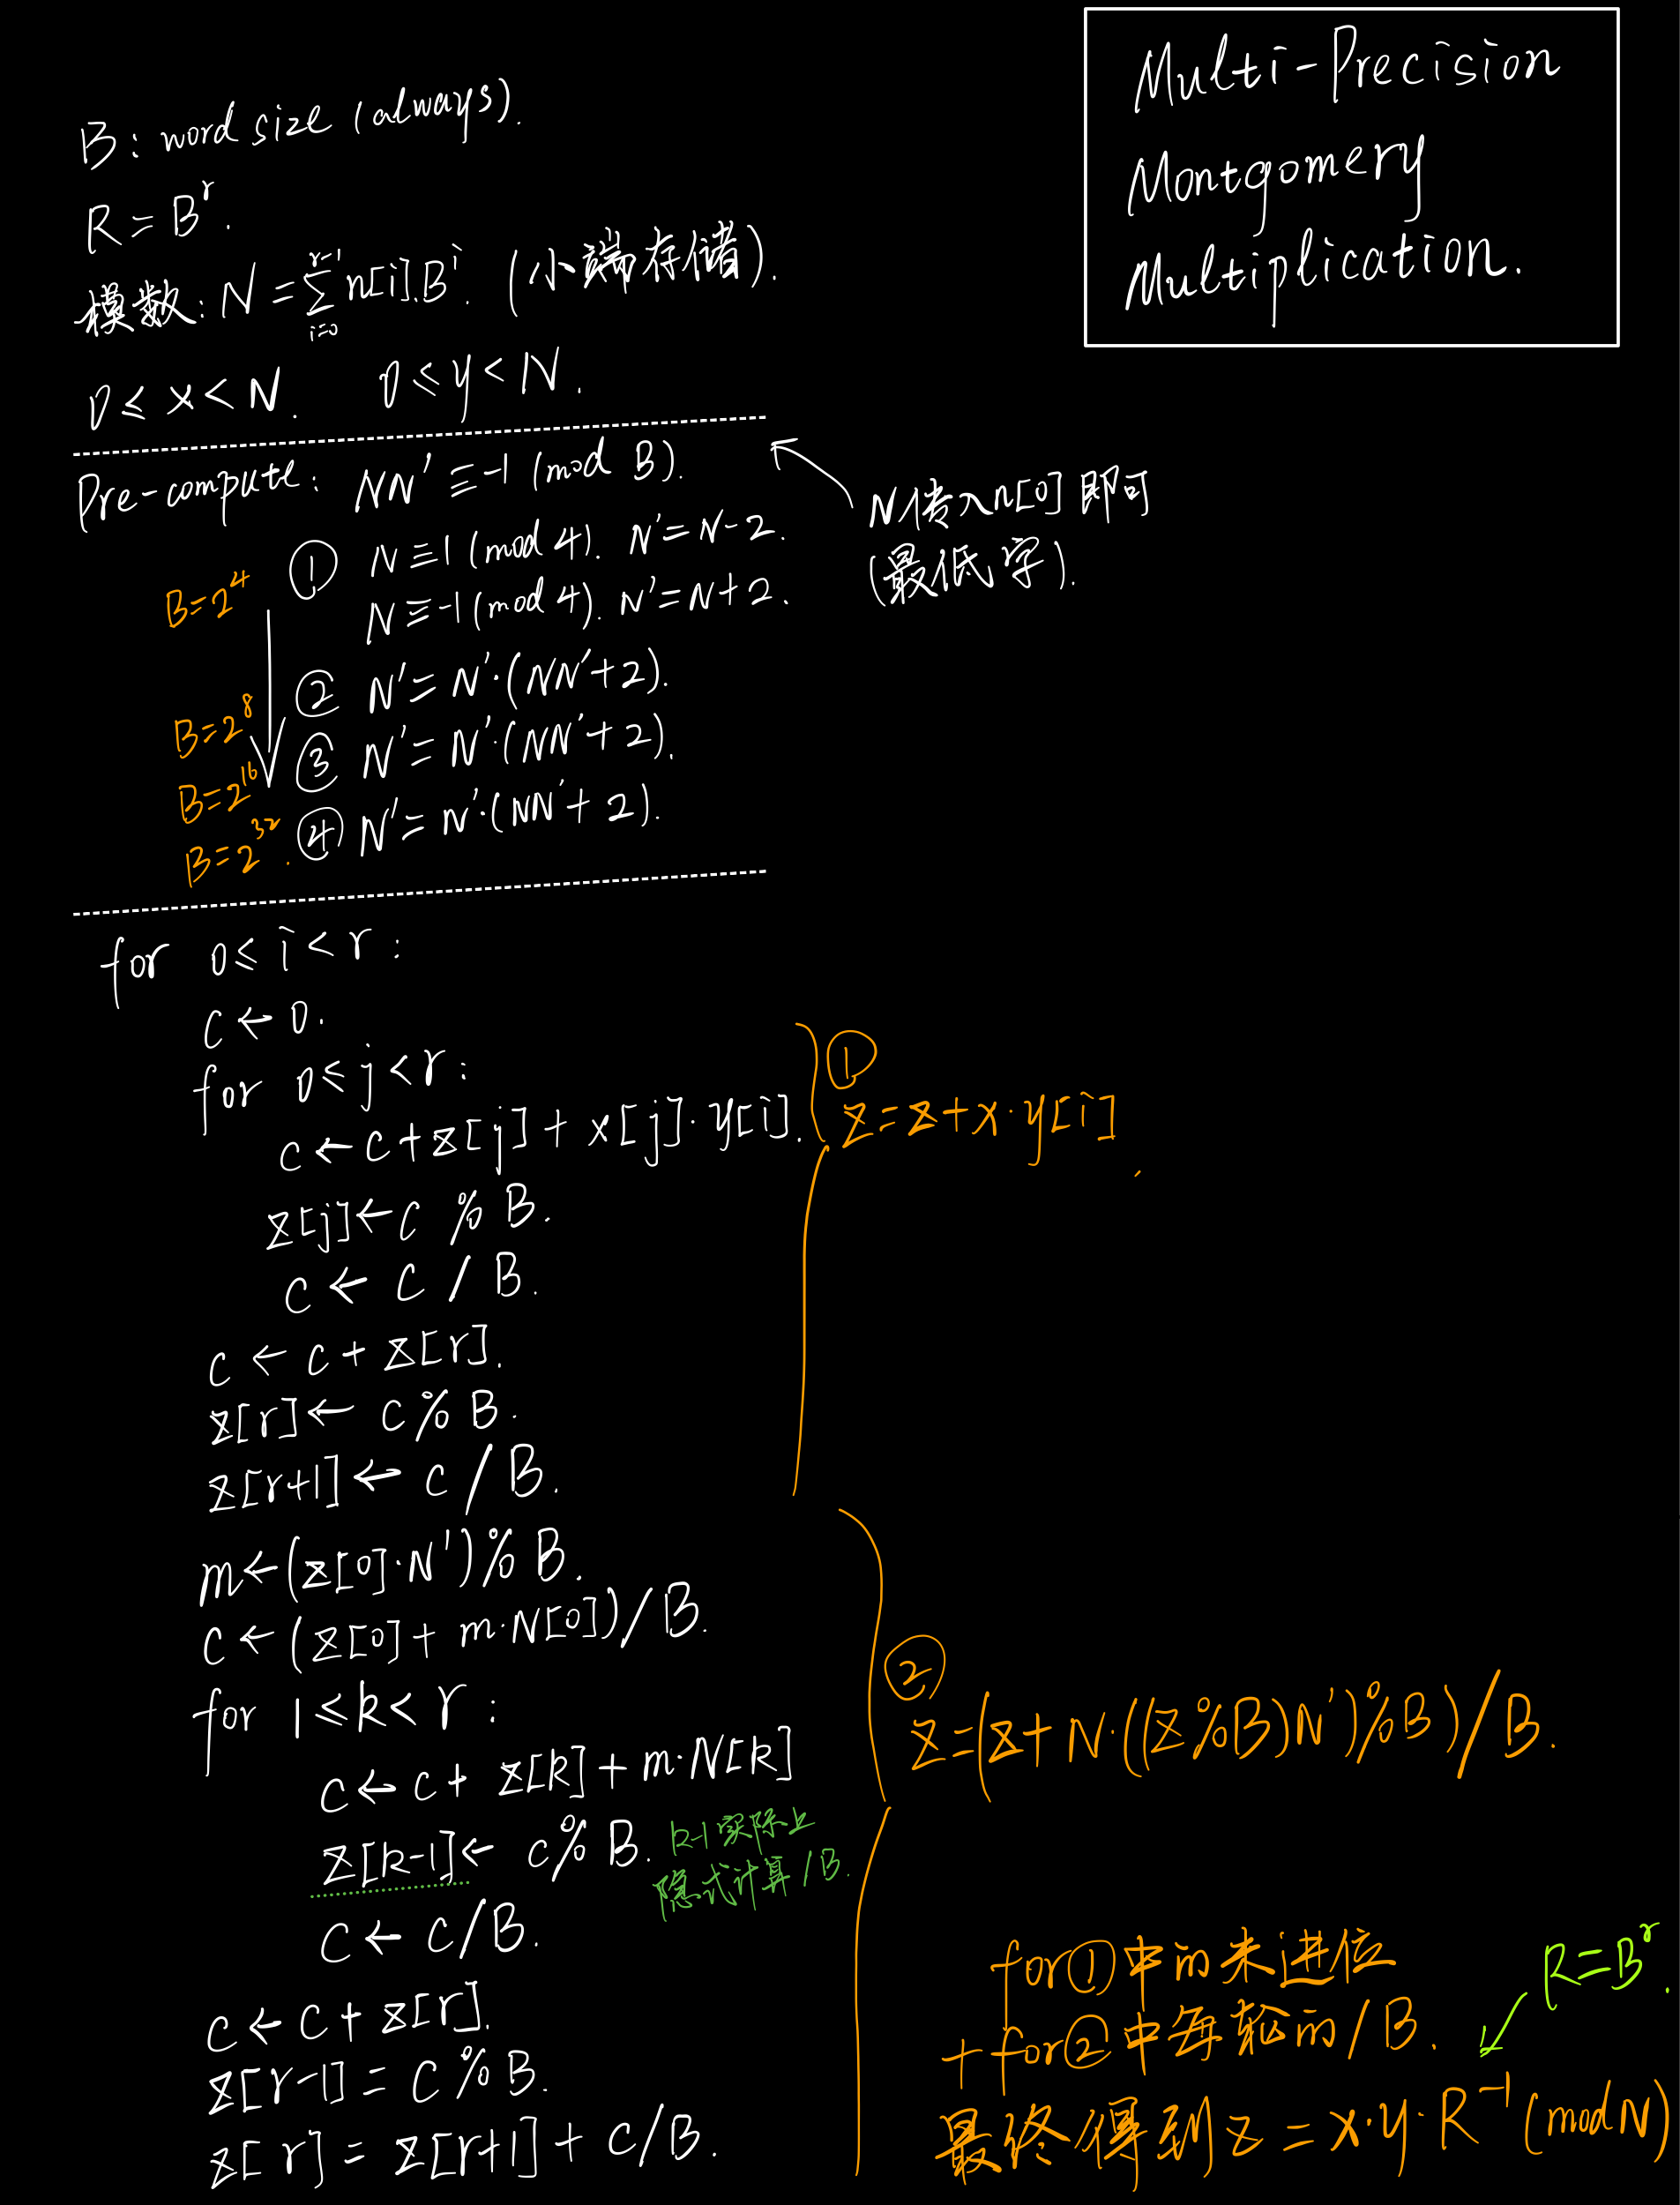 Multi-Precision
Montgomery
Multiplication.
B: word size (always).
R = B^r.
模数: N = ∑_{i=0}^{r-1} n[i].B^i. (小端存储).
0 ≤ x < N. 0 ≤ y < N.
Pre-compute: NN' ≡ -1 (mod B).
N传入n[0]即可
(最低字).
B=2^4 ① N ≡ 1 (mod 4). N' = N - 2.
N ≡ -1 (mod 4). N' = N + 2.
② N' = N'·(NN'+2).
B=2^8 ③ N' = N'·(NN'+2).
B=2^16 ④ N' = N'·(NN'+2).
B=2^32.
for 0 ≤ i < r:
c ← 0.
for 0 ≤ j < r:
c ← c + z[j] + x[j]·y[i].
z[j] ← c % B.
c ← c / B.
c ← c + z[r].
z[r] ← c % B.
z[r+1] ← c / B.
①
z = z + x·y[i]
m ← (z[0]·N') % B.
c ← (z[0] + m·N[0]) / B.
for 1 ≤ k < r:
c ← c + z[k] + m·N[k]
z[k-1] ← c % B. k-1实际上
隐式计算/B.
c ← c / B.
c ← c + z[r].
z[r-1] = c % B.
z[r] = z[r+1] + c / B.
②
z = (z + N·((z%B)N')%B) / B.
for①中的未进位
+for②中每轮的/B.
R = B^r.
最终得到z = x·y·R^{-1} (mod N)